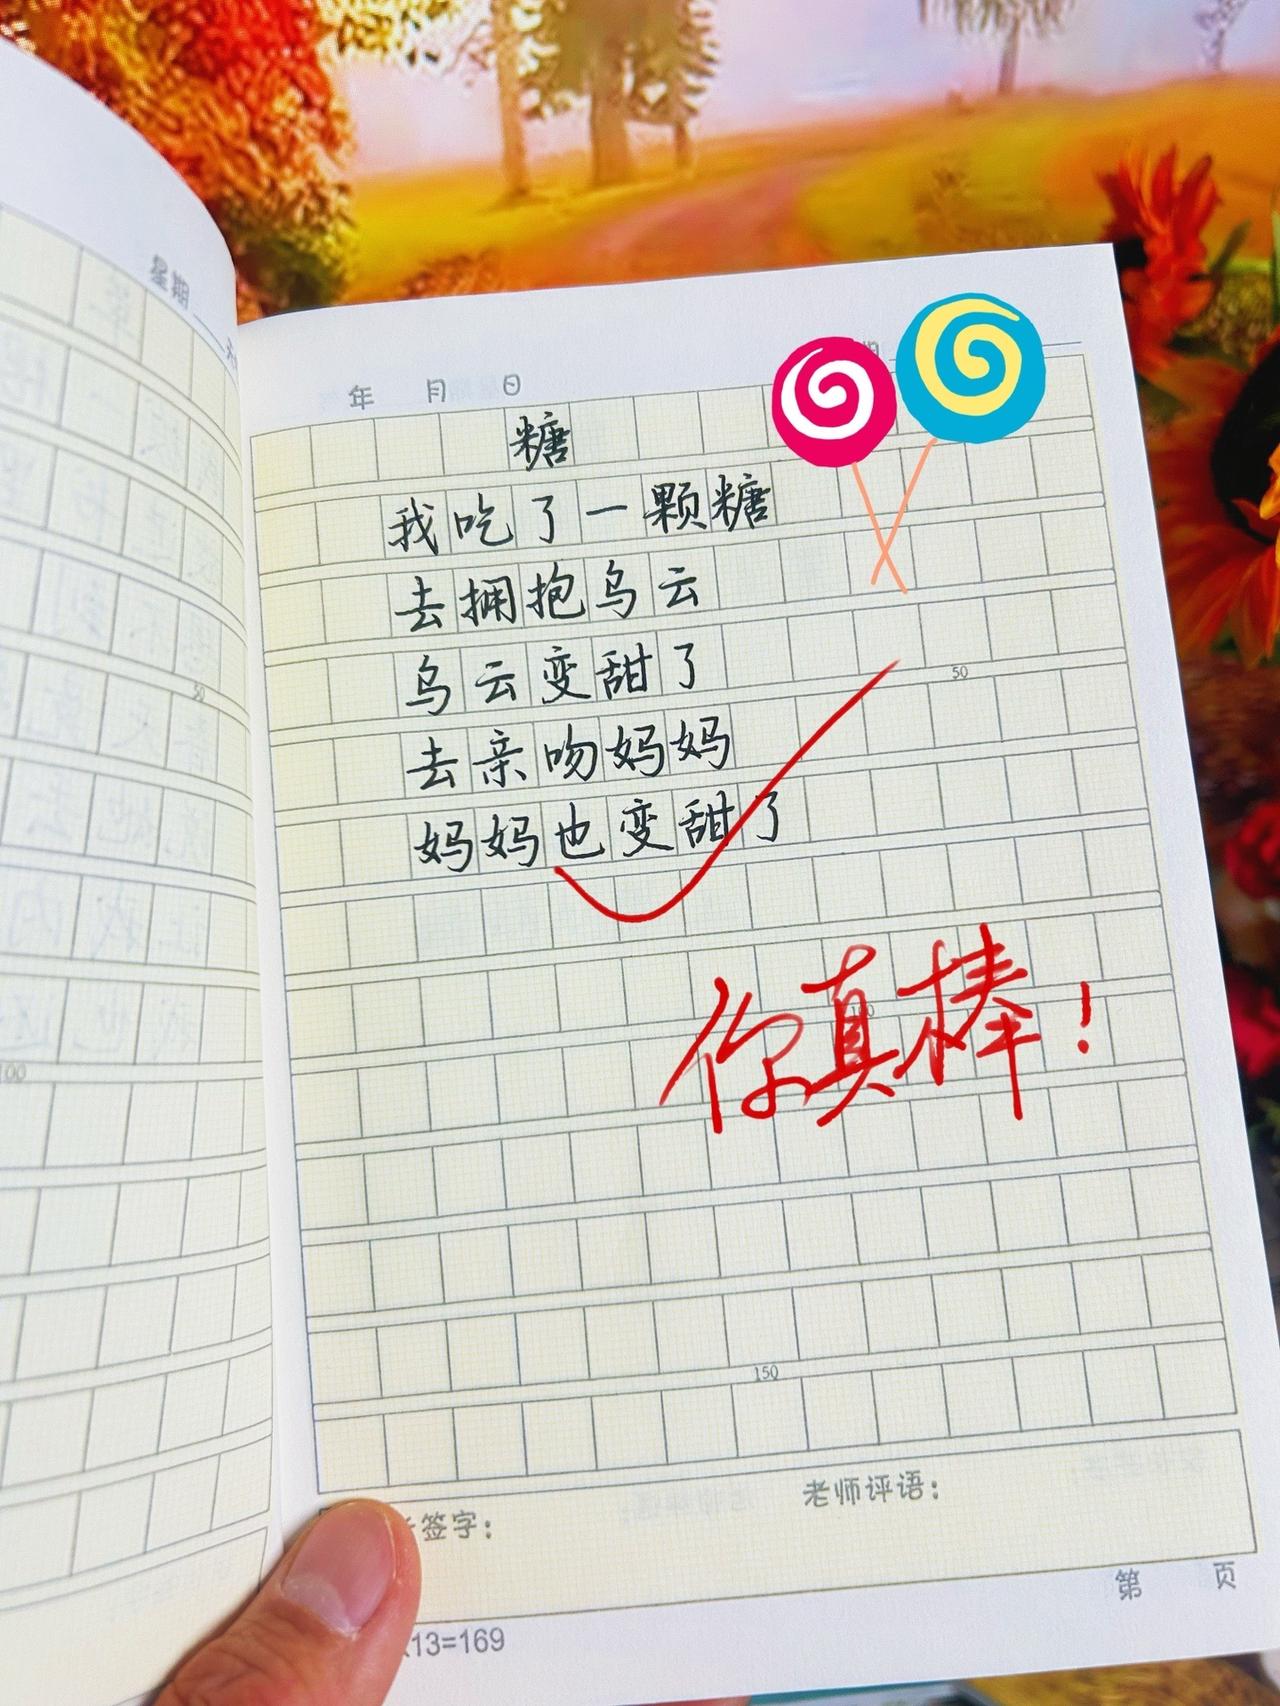 星期
年 月 日 期
糖
我吃了一颗糖
去拥抱乌云
乌云变甜了
去亲吻妈妈
妈妈也变甜了
你真棒!
50
50
100
150
签字:
老师评语:
第 页
13=169